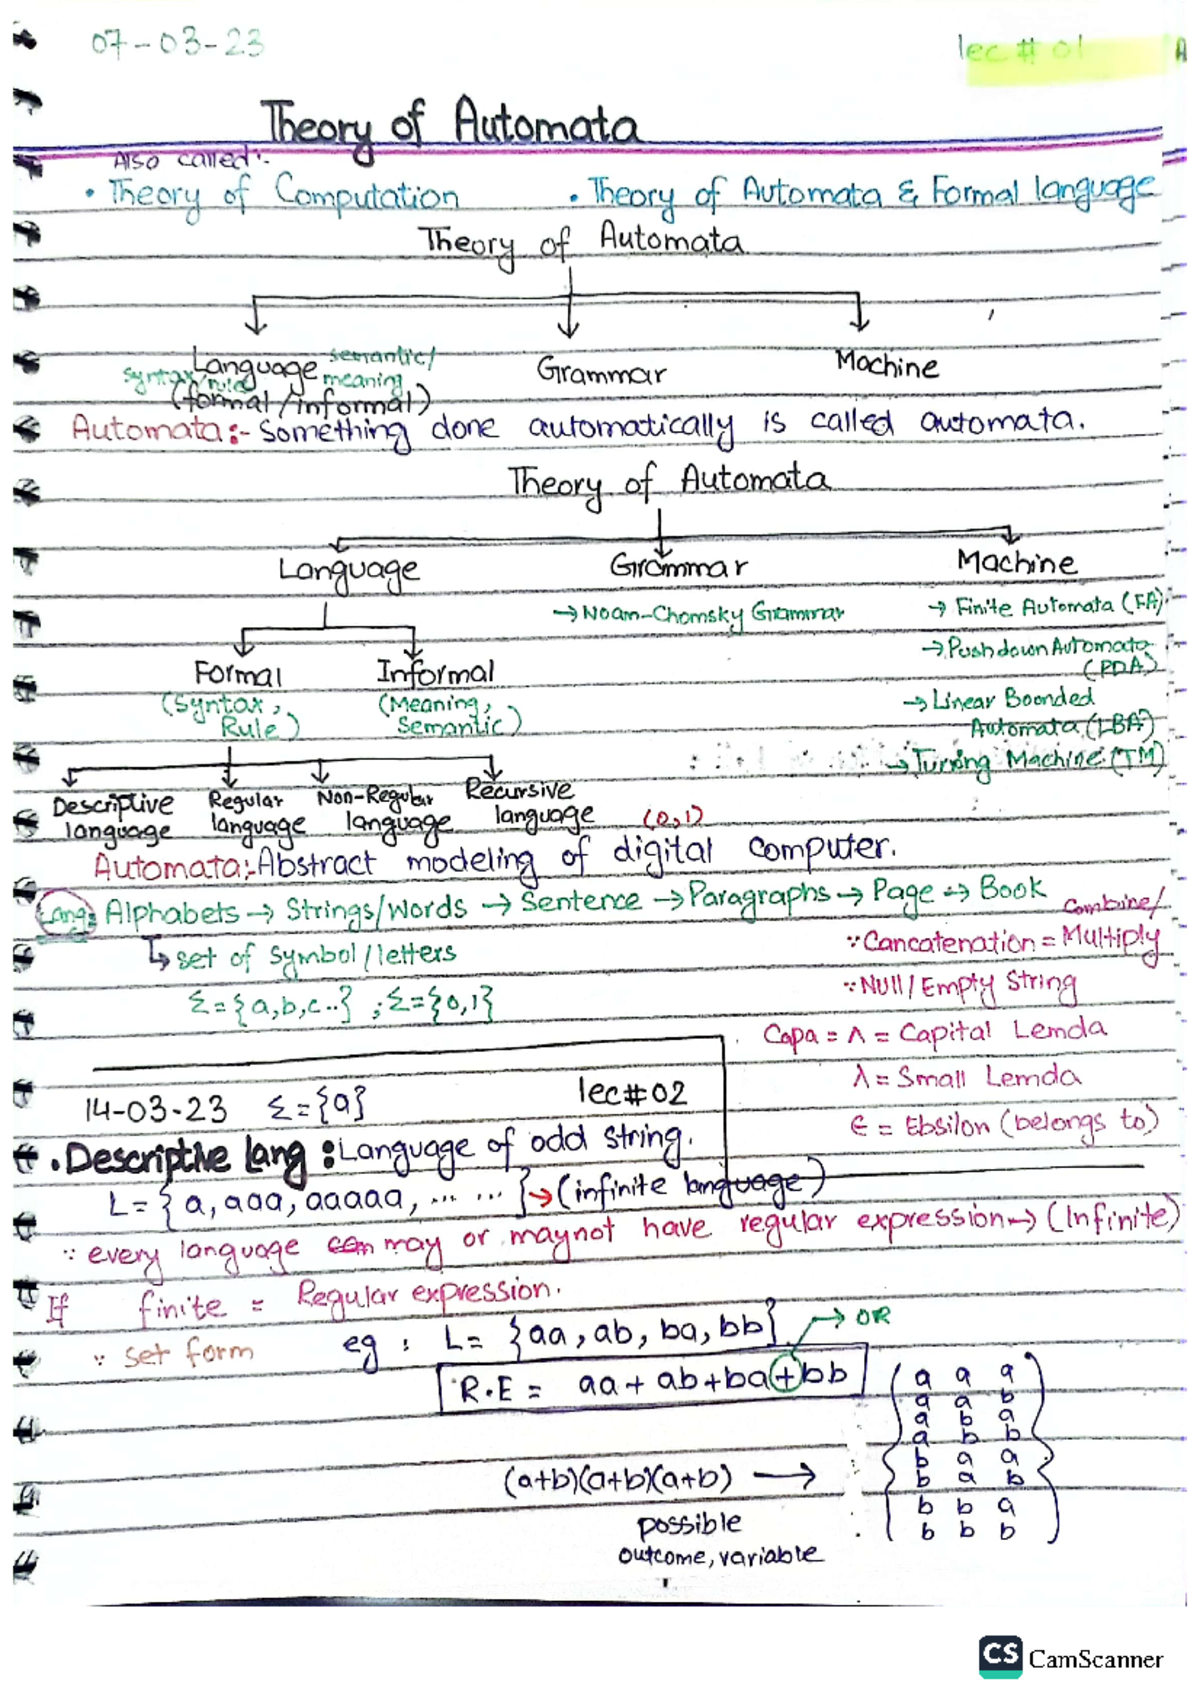 07-03-23 lec # 01
Theory of Automata
Also called:-
• Theory of Computation • Theory of Automata & Formal language
Theory of Automata
Language Grammar Machine
syntax/rule semantic/
meaning
(formal/informal)
Automata:- Something done automatically is called automata.
Theory of Automata
Language Grammar Machine
→ Noam-Chomsky Grammar → Finite Automata (FA)
→ Pushdown Automata
(PDA)
Formal Informal
(Syntax, (Meaning, → Linear Boonded
Rule) Semantic) Automata (LBA)
→ Turing Machine (TM)
Descriptive Regular Non-Regular Recursive
language language language language (0,1)
Automata:- Abstract modeling of digital computer.
Lang: Alphabets → Strings/Words → Sentence → Paragraphs → Page → Book
Combine/
↳ set of symbol/letters ∵ Cancatenation = Multiply
Σ={a,b,c..} ; Σ={0,1} ∵ Null/Empty String
Capa = Λ = Capital Lemda
λ = Small Lemda
14-03-23 Σ={a} lec#02
∈ = Ebsilon (belongs to)
• Descriptive lang : Language of odd string.
L={a, aaa, aaaaa, ... ... } → (infinite language)
∵ every language may or maynot have regular expression → (Infinite)
If finite = Regular expression.
∵ set form eg : L= {aa, ab, ba, bb} → OR
R.E = aa + ab + ba + bb
a a a
a a b
a b a
a b b
b a a
(a+b)(a+b)(a+b) → b a b
b b a
possible b b b
outcome, variable
CS CamScanner